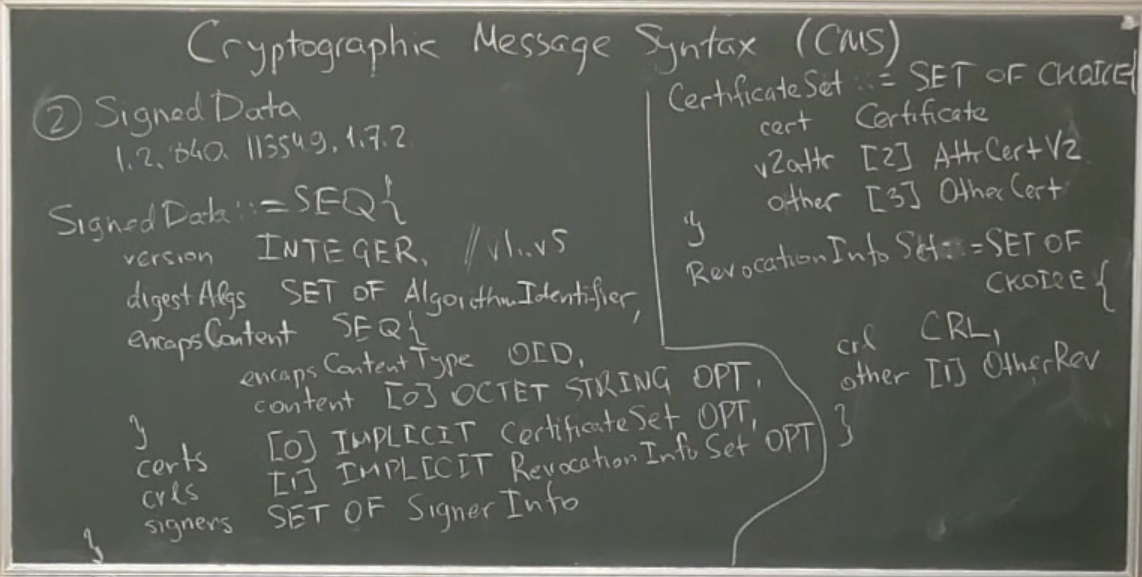 Cryptographic Message Syntax (CMS)
② Signed Data
1.2.840.113549.1.7.2
SignedData ::= SEQ{
version INTEGER, //v1..v5
digestAlgs SET OF AlgorithmIdentifier,
encapsContent SEQ{
encapsContentType OID,
content [0] OCTET STRING OPT,
}
certs [0] IMPLICIT CertificateSet OPT,
crls [1] IMPLICIT RevocationInfoSet OPT
signers SET OF SignerInfo
}
CertificateSet ::= SET OF CHOICE{
cert Certificate
v2attr [2] AttrCertV2
other [3] OtherCert
}
RevocationInfoSet ::= SET OF
CHOICE{
crl CRL,
other [1] OtherRev
}